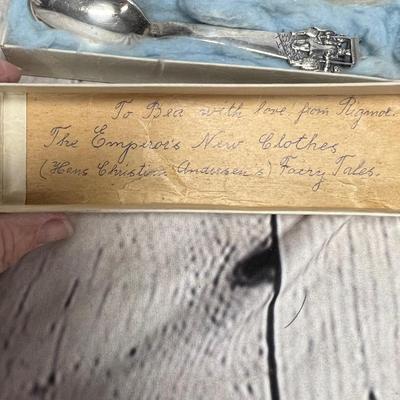 To Bea with love from Rigmor.
The Emperor's New Clothes
(Hans Christian Andersen's) Fairy Tales.